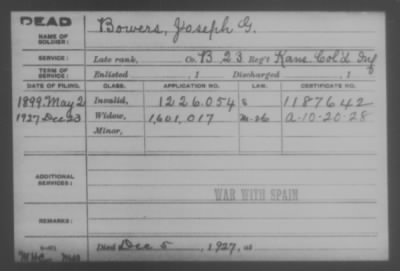 DEAD
NAME OF SOLDIER: Bowers, Joseph G.
SERVICE: Late rank, Co. B 23 Reg't Kans. Col'd Inf
TERM OF SERVICE: Enlisted , 1 Discharged , 1
DATE OF FILING. CLASS. APPLICATION NO. LAW. CERTIFICATE NO.
1899. May 2 Invalid, 1226.054 S 1187642
1927 Dec 23 Widow, 1,601,017 M-26 A-10-20-28
Minor,
ADDITIONAL SERVICES:
WAR WITH SPAIN
REMARKS:
Died Dec 5, 1927, at